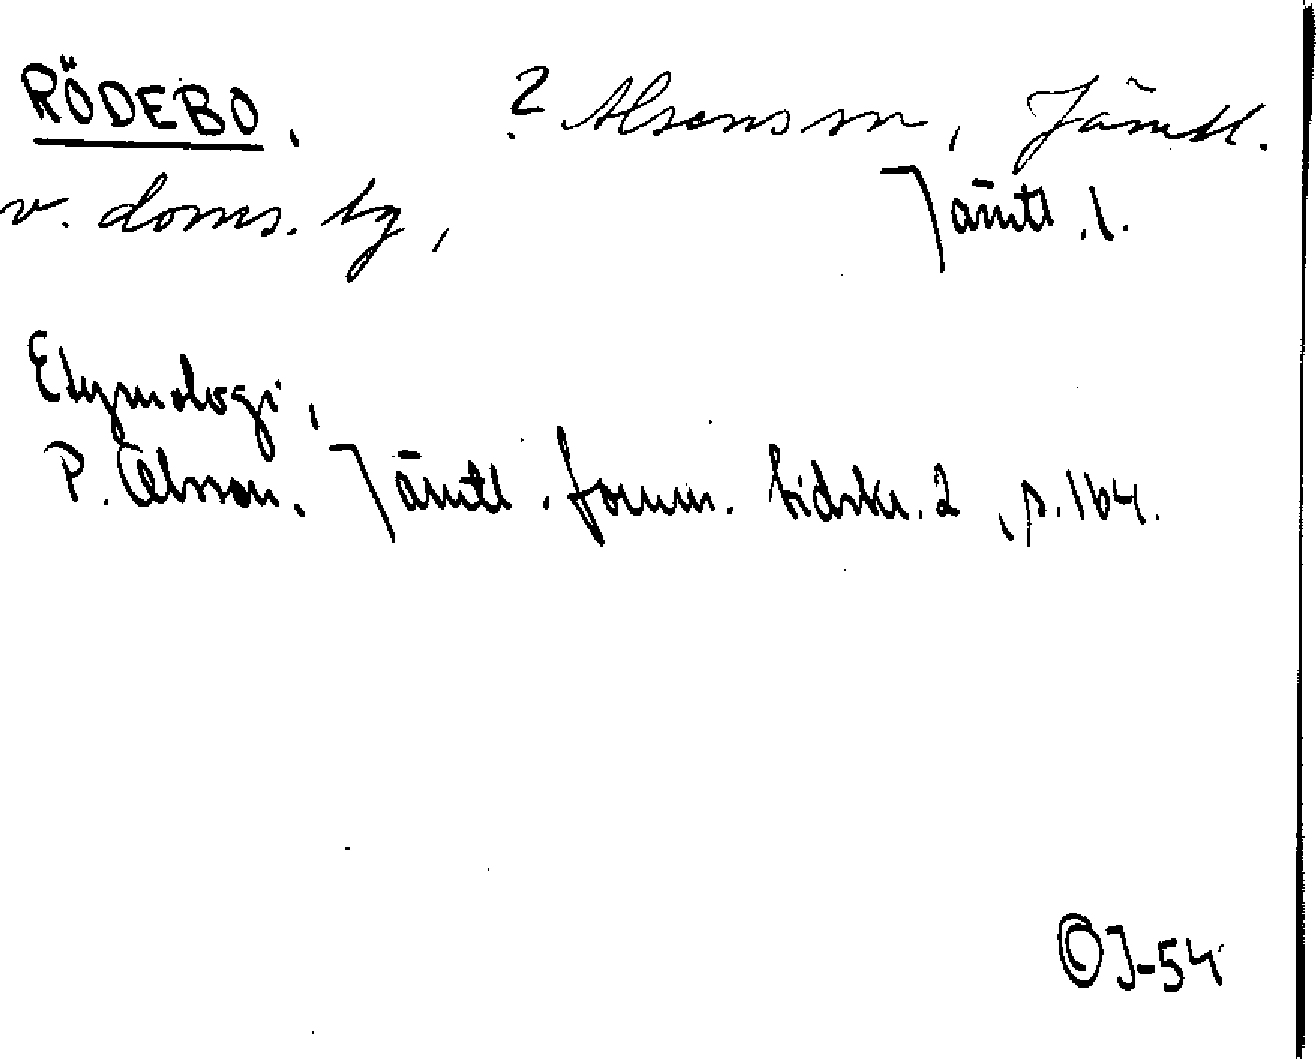 RÖDEBO, ? Alsens sn, Jämtl.
v. doms. tg, Jämtl. l.
Etymologi,
P. Olsson. Jämtl. fornm. tidskr. 2, s. 164.
©J-54